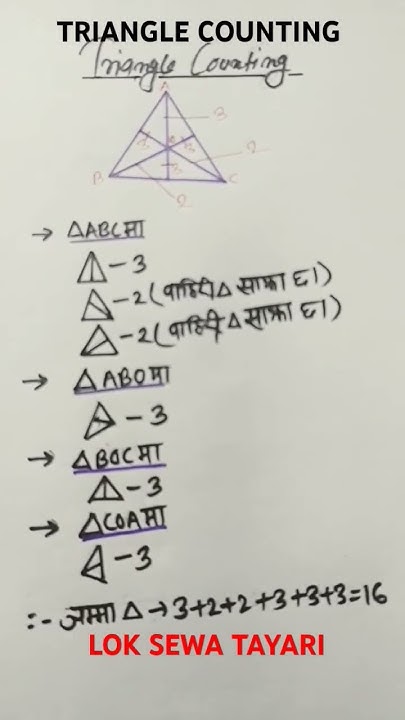 TRIANGLE COUNTING
Triangle Counting
A
3
3
3
2
B
3
C
2
→ △ABCमा
- 3
- 2 (बाहिरी △ साझा छ।)
- 2 (बाहिरी △ साझा छ।)
→ △ABOमा
- 3
→ △BOCमा
- 3
→ △COAमा
- 3
:- जम्मा △ → 3+2+2+3+3+3=16
LOK SEWA TAYARI